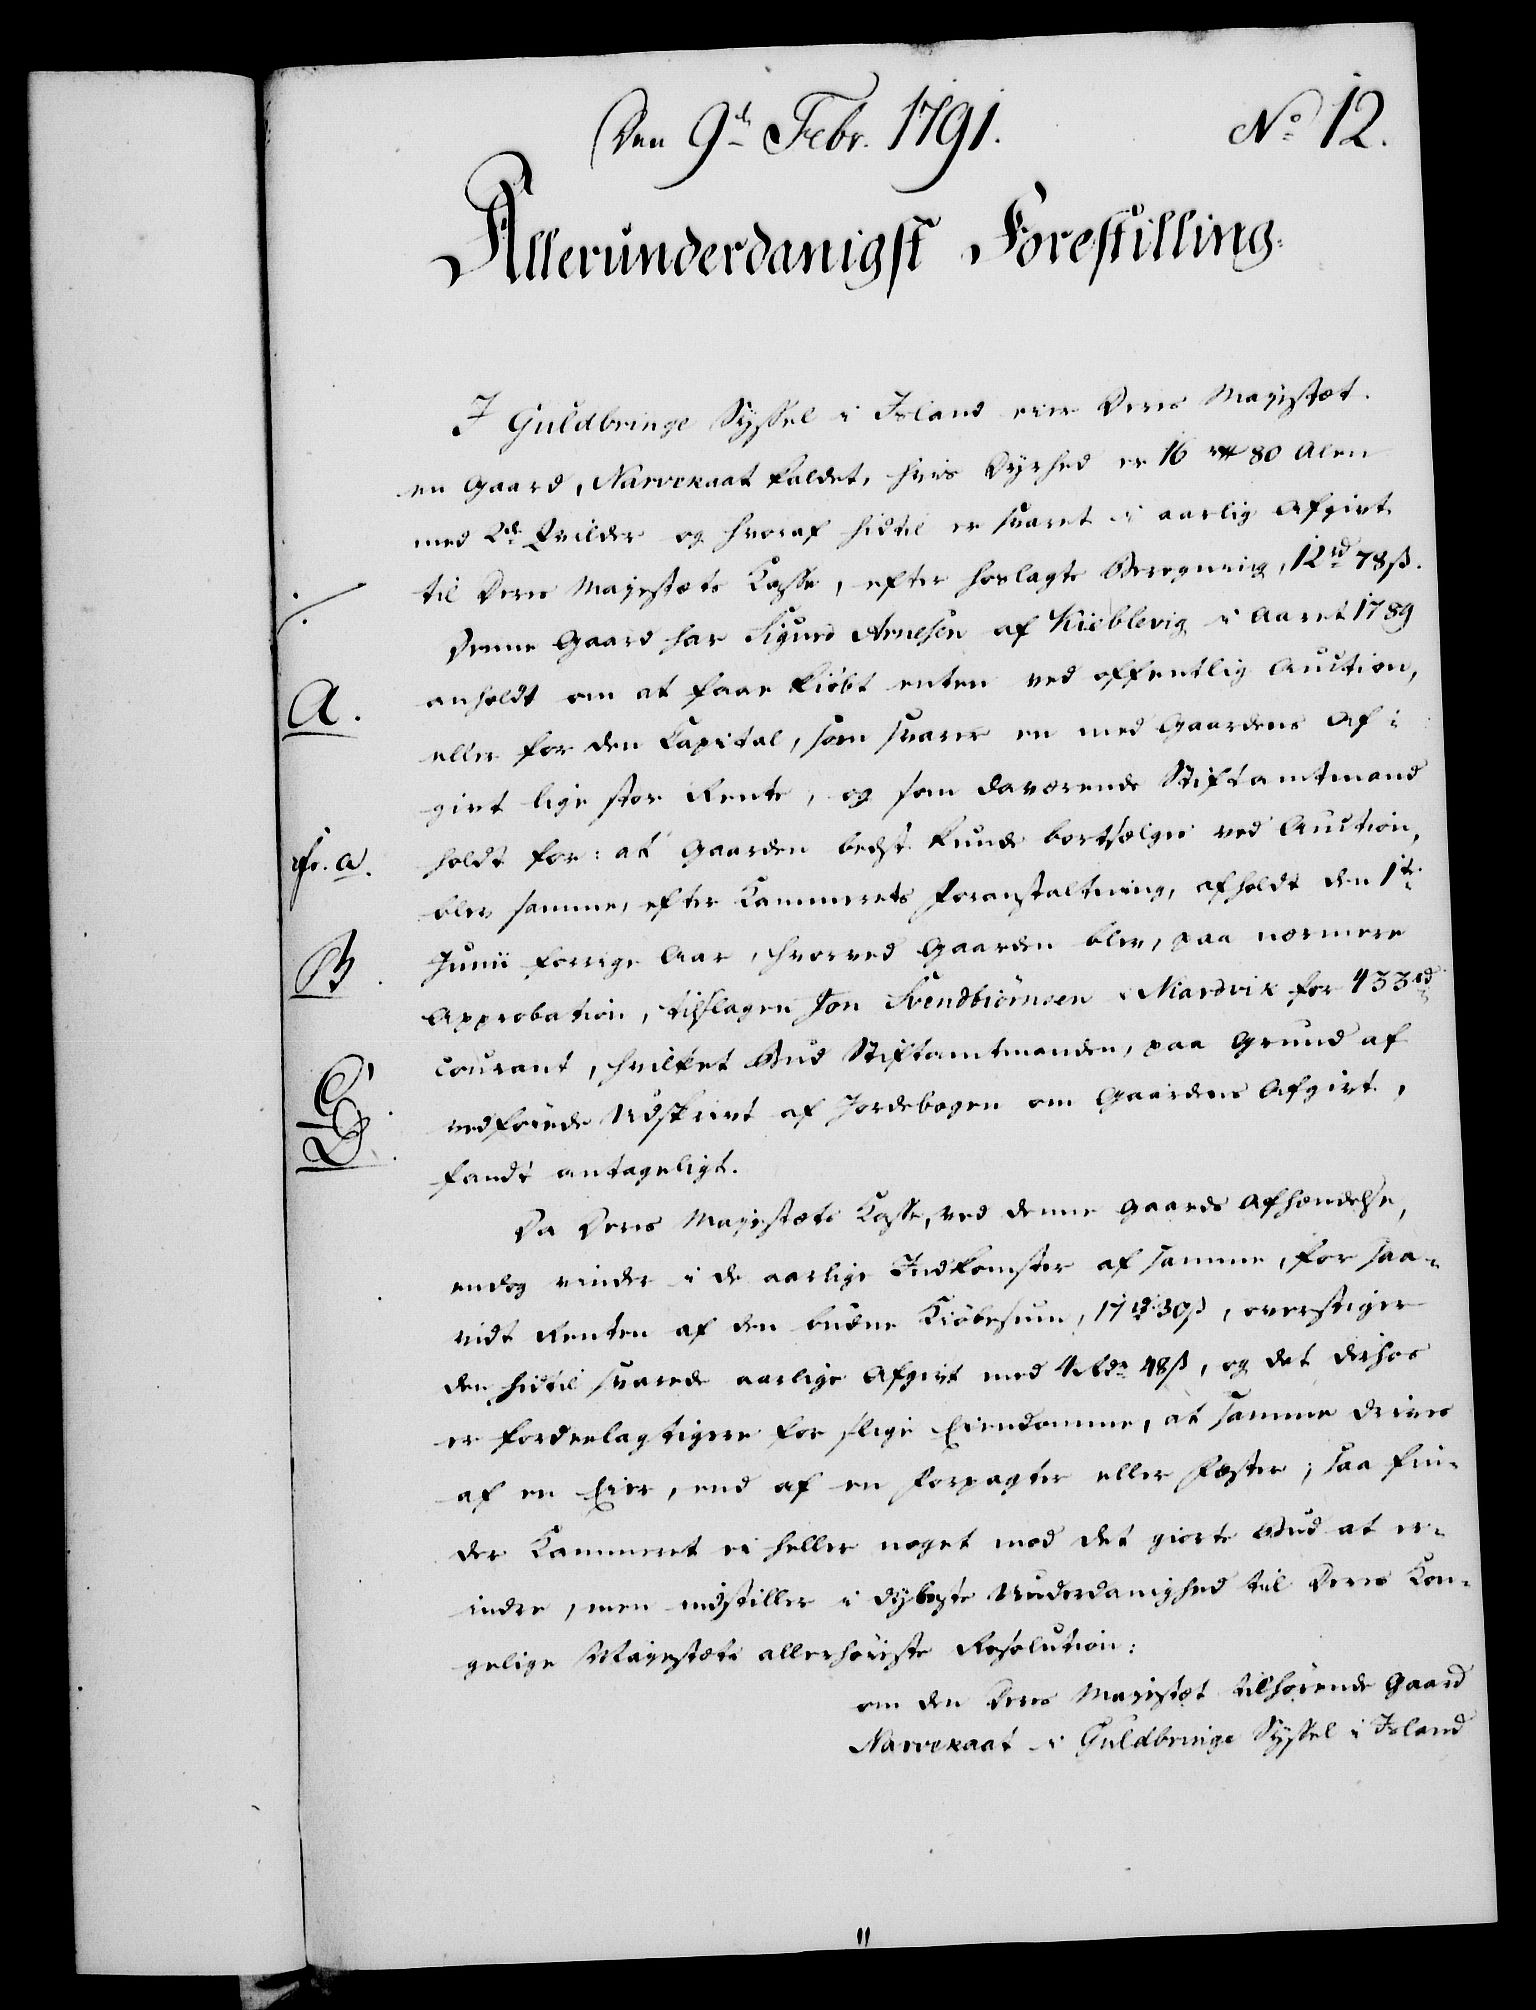 Den 9de Febr. 1791. No 12.
Allerunderdanigst Forestilling.
I Guldbringe Syssel i Island eier Deres Majestæt
en Gaard, Narvekaat kaldet, hvis Dyrhed er 16 80 Alen
med 2de Qvilder og hvoraf hidtil er svaret i aarlig Afgivt
til Deres Majestæts Kasse, efter hoslagte Beregning, 12rd 78ß.
./.
Denne Gaard har Sigurd Arnesen af Kieblevig i Aaret 1789
A. anholdt om at faae kiøbt enten ved offentlig Auction,
eller for den Capital, som svarer en med Gaardens Af-
givt lige stor Rente, og som daværende Stiftamtmand
fr. a. holdt for: at Gaarden bedst kunde bortsælges ved Auction,
blev samme, efter Kammerets Foranstaltning, afholdt den 1te
B. Junii forrige Aar, hvorved Gaarden blev, paa nærmere
Approbation, tilslagen Jon Svendbiörnsen i Nardvik for 433rd
C. courant, hvilket Bud Stiftamtmanden, paa Grund af
D. vedføiede Udskrivt af Jordebogen om Gaardens Afgivt,
fandt antageligt.
Da Deres Majestæts Kasse, ved denne Gaards Afhændelse,
endog vinder i de aarlige Indkomster af samme, for saa-
vidt Renten af den budne Kiøbesum, 17rd 30ß, overstiger
den hidtil svarede aarlige Afgivt med 4 Rdr 48ß, og det derhos
er fordeelagtigere for slige Eiendomme, at samme drives
af en Eier, end af en Forpagter eller Fæster; saa fin-
der Kammeret ei heller noget mod det giorte Bud at er-
indre, men indstiller i dybeste Underdanighed til Deres Kon-
gelige Majestæts allerhøieste Resolution:
om den Deres Majestæt tilhørende Gaard
Narvekaat i Guldbringe Syssel i Island
11